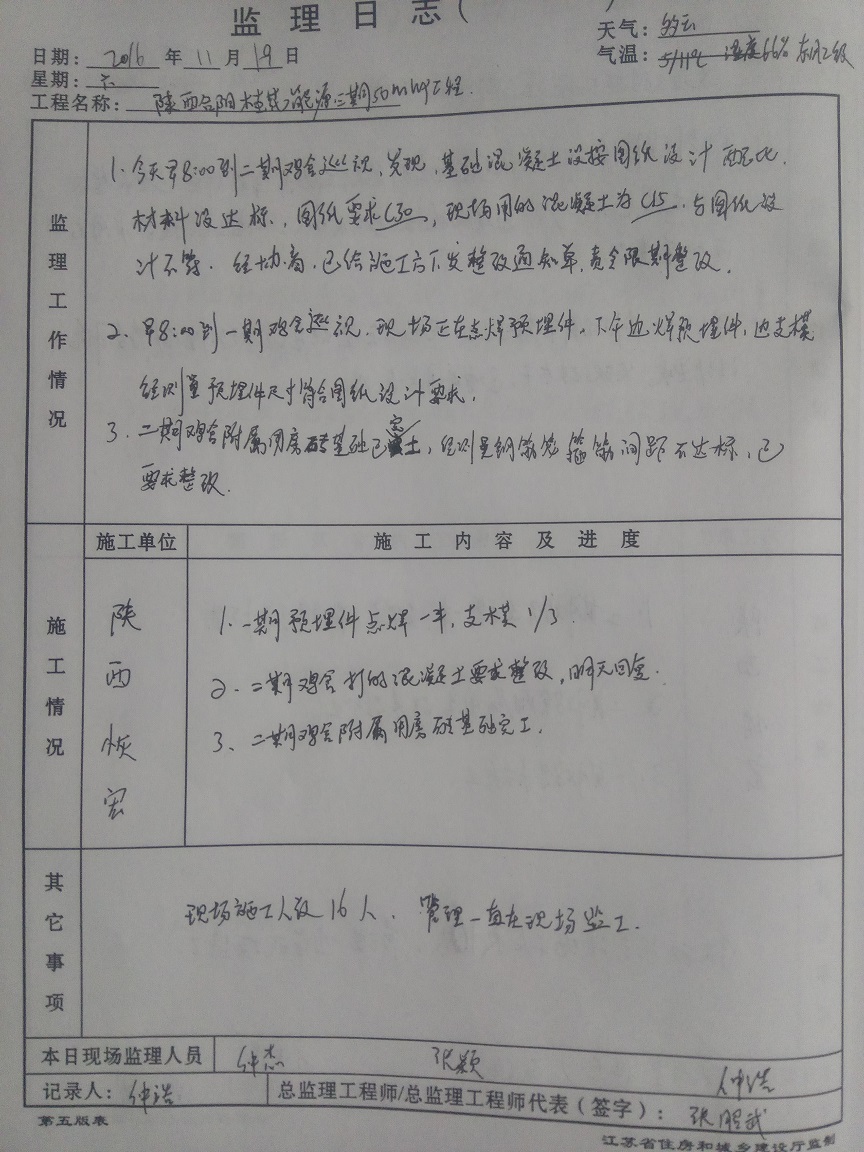 监理日志(
日期：2016年11月19日
天气：多云
星期：六
气温：5/11℃ 湿度66% 东风2级
工程名称：陕西合阳 能源二期50mwp工程.
监理工作情况
1. 今天早8:00到二期鸡舍巡视,发现,基础混凝土没按图纸设计配比.
材料没达标,图纸要求C30,现场用的混凝土为C15.与图纸设
计不符.经协商.已给施工方下发整改通知单,责令限期整改.
2. 早8:00到一期鸡舍巡视.现场正在点焊预埋件,下午边焊预埋件,边支模
经测量预埋件尺寸符合图纸设计要求.
3. 二期鸡舍附属用房砖基础已完工,经测量钢筋笼箍筋间距不达标,已
要求整改.
施工情况
施工单位 施工内容及进度
陕西恢宏
1. 一期预埋件点焊一半,支模1/3.
2. 二期鸡舍打的混凝土要求整改,明天回复.
3、二期鸡舍附属用房砖基础完工.
其它事项
现场施工人数16人. 管理一直在现场监工.
本日现场监理人员 仲杰 张颖 仲浩
记录人：仲浩 总监理工程师/总监理工程师代表(签字)：张 武
第五版表 江苏省住房和城乡建设厅监制